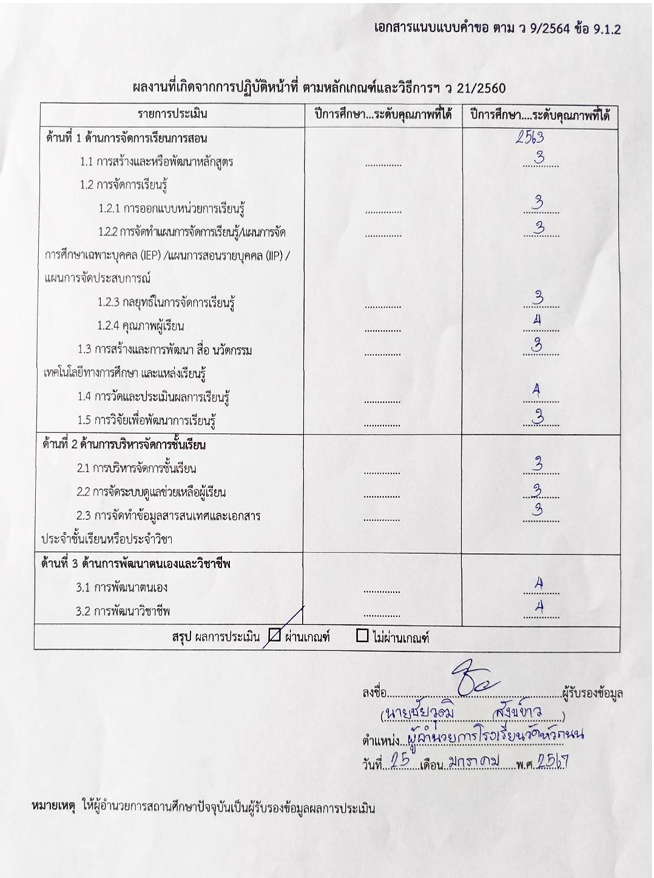 เอกสารแนบแบบคำขอ ตาม ว 9/2564 ข้อ 9.1.2
ผลงานที่เกิดจากการปฏิบัติหน้าที่ ตามหลักเกณฑ์และวิธีการฯ ว 21/2560
รายการประเมิน ปีการศึกษา...ระดับคุณภาพที่ได้ ปีการศึกษา....ระดับคุณภาพที่ได้
ด้านที่ 1 ด้านการจัดการเรียนการสอน 2563
1.1 การสร้างและหรือพัฒนาหลักสูตร ............. 3
1.2 การจัดการเรียนรู้
1.2.1 การออกแบบหน่วยการเรียนรู้ ............. 3
1.2.2 การจัดทำแผนการจัดการเรียนรู้/แผนการจัด ............. 3
การศึกษาเฉพาะบุคคล (IEP) /แผนการสอนรายบุคคล (IIP) /
แผนการจัดประสบการณ์
1.2.3 กลยุทธ์ในการจัดการเรียนรู้ ............. 3
1.2.4 คุณภาพผู้เรียน ............. 4
1.3 การสร้างและการพัฒนา สื่อ นวัตกรรม ............. 3
เทคโนโลยีทางการศึกษา และแหล่งเรียนรู้
1.4 การวัดและประเมินผลการเรียนรู้ ............. 4
1.5 การวิจัยเพื่อพัฒนาการเรียนรู้ ............. 3
ด้านที่ 2 ด้านการบริหารจัดการชั้นเรียน
2.1 การบริหารจัดการชั้นเรียน ............. 3
2.2 การจัดระบบดูแลช่วยเหลือผู้เรียน ............. 3
2.3 การจัดทำข้อมูลสารสนเทศและเอกสาร ............. 3
ประจำชั้นเรียนหรือประจำวิชา
ด้านที่ 3 ด้านการพัฒนาตนเองและวิชาชีพ
3.1 การพัฒนาตนเอง ............. 4
3.2 การพัฒนาวิชาชีพ ............. 4
สรุป ผลการประเมิน ผ่านเกณฑ์ ไม่ผ่านเกณฑ์
ลงชื่อ...............ผู้รับรองข้อมูล
(นายชัยวุฒิ สังข์ขาว)
ตำแหน่ง...ผู้อำนวยการโรงเรียนวัดหัวถนน
วันที่ 25 เดือน มกราคม พ.ศ. 2567
หมายเหตุ ให้ผู้อำนวยการสถานศึกษาปัจจุบันเป็นผู้รับรองข้อมูลผลการประเมิน